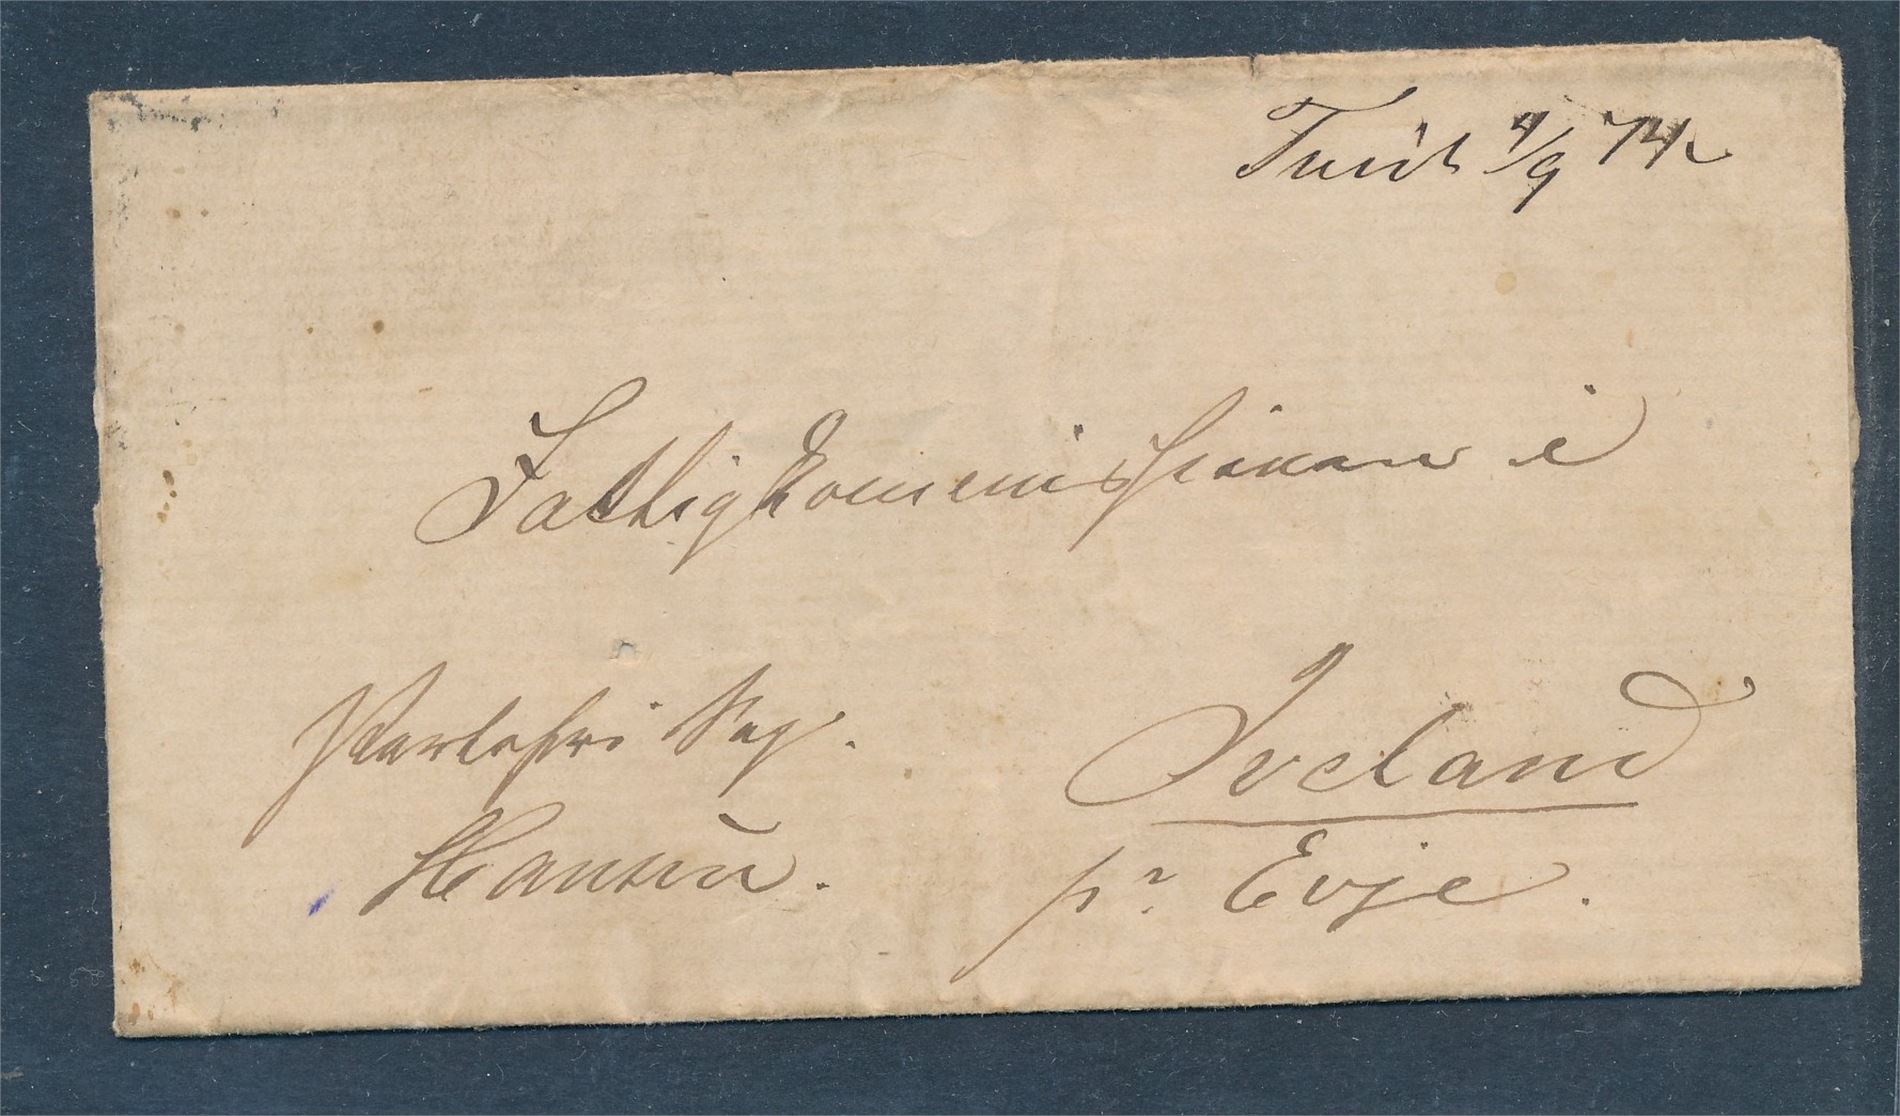 Tveit 4/9 74
Fattigkommissionen i
Portofri Sag.
Hansen.
Iveland
pr Evje.